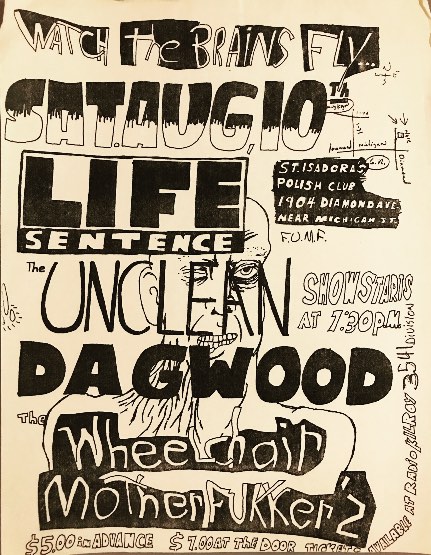 WATCH the BRAINS FLY
SAT.AUG,10th
LIFE
SENTENCE
ST. ISADORAS
POLISH CLUB
1904 DIAMOND AVE
NEAR MICHIGAN ST.
F.U.M.F.
The
UNCLEAN
SHOW STARTS
AT 7:30 p.m.
DAGWOOD
The
Wheelchair
MotherFukker'z
$5.00 in ADVANCE $7.00 AT THE DOOR TICKETS AVAILABLE AT RADIO KILLROY 354 DIVISION